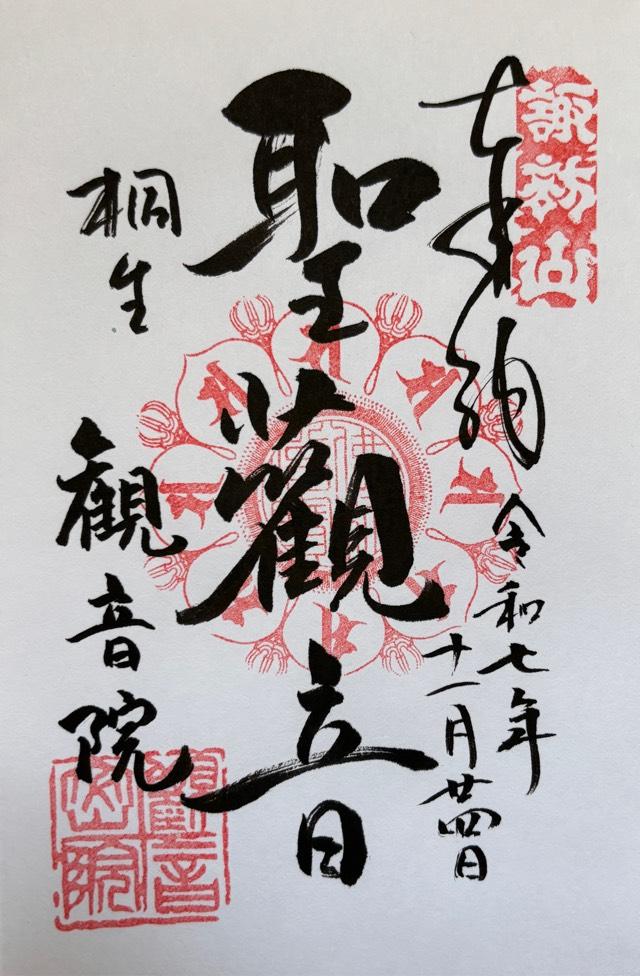 諏訪山
奉納
令和七年
十一月廿四日
聖觀音
桐生
観音院